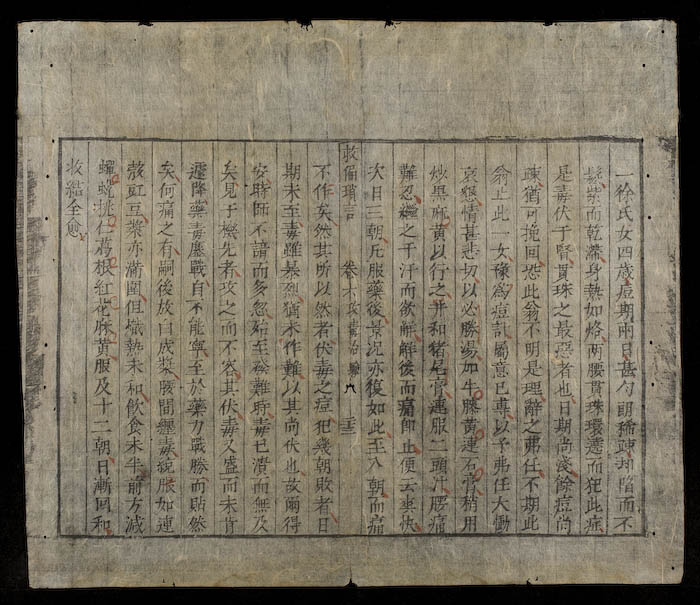 一徐氏女四歲痘期兩日甚勻朗稀疎却陷而不
鬆紫而乾滯身熱如烙兩腰貫珠環遶而犯此症
是毒伏于腎貫珠之最惡者也日期尚淺餘痘尚
疎猶可挽回恐此翁不明是理辭之弗任不期此
翁止此一女豫為痘計屬意已專以予弗任大慟
哀懇情甚悲切以必勝湯加牛膝黃連石膏稍用
炒黑麻黃以行之并和猪尾膏連服二頭汁腰痛
難忍繼之干汗而欲解解後而痛卽止便云爽快
次日三朝凡服藥後景況亦復如此至八朝而痛
救偏瑣言 卷 攻毒治驗
不作矣然其所以然者伏毒之痘犯幾朝敗者日
期未至毒雖暴烈猶未作難以其尚伏也故爾得
安時師不諳而多忽殆至發難時毒已潰而無及
矣見于機先者攻之而不容其伏毒久盛而未肯
遽降藥毒鏖戰自不能寧至於藥力戰勝而貼然
矣何痛之有嗣後放白成漿腰間纏毒脹如連
殼豇豆漿亦滿圍但熾熱未和飲食未半前方減
桃仁葛根紅花麻黃服及十二朝日漸回和
收結全愈